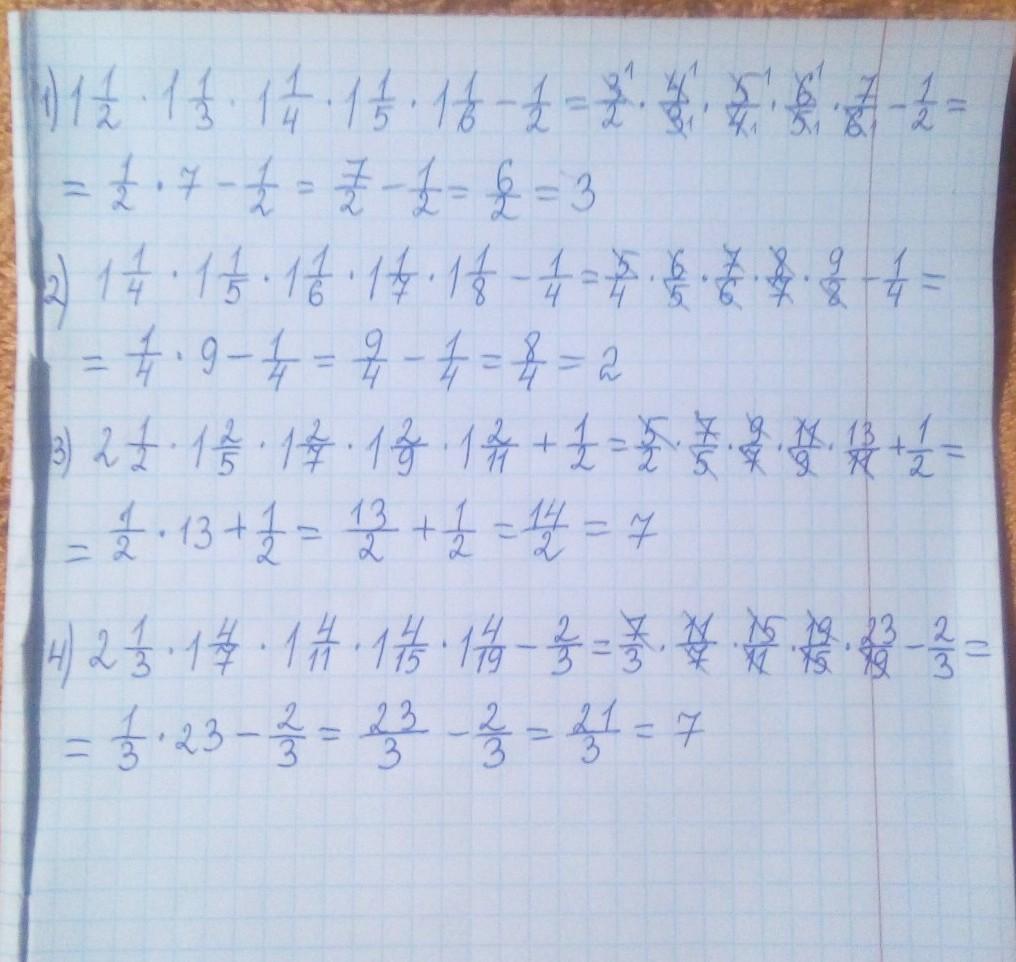 1) 1 1/2 · 1 1/3 · 1 1/4 · 1 1/5 · 1 1/6 − 1/2 = 3/2 · 4/3 · 5/4 · 6/5 · 7/6 − 1/2 =
= 1/2 · 7 − 1/2 = 7/2 − 1/2 = 6/2 = 3
2) 1 1/4 · 1 1/5 · 1 1/6 · 1 1/7 · 1 1/8 − 1/4 = 5/4 · 6/5 · 7/6 · 8/7 · 9/8 − 1/4 =
= 1/4 · 9 − 1/4 = 9/4 − 1/4 = 8/4 = 2
3) 2 1/2 · 1 2/5 · 1 2/7 · 1 2/9 · 1 2/11 + 1/2 = 5/2 · 7/5 · 9/7 · 11/9 · 13/11 + 1/2 =
= 1/2 · 13 + 1/2 = 13/2 + 1/2 = 14/2 = 7
4) 2 1/3 · 1 4/7 · 1 4/11 · 1 4/15 · 1 4/19 − 2/3 = 7/3 · 11/7 · 15/11 · 19/15 · 23/19 − 2/3 =
= 1/3 · 23 − 2/3 = 23/3 − 2/3 = 21/3 = 7